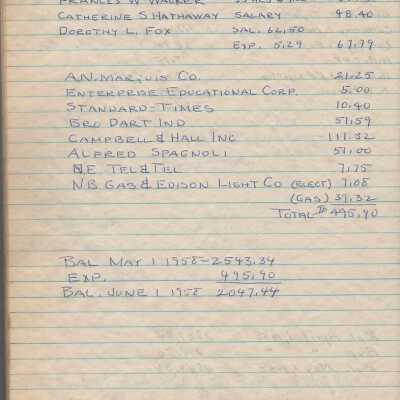 FRANCES W WALKER
CATHERINE S HATHAWAY SALARY 48.40
DOROTHY L. FOX SAL. 62,50
EXP. 5.29 67.79
A.N. MARQUIS CO. 21.25
ENTERPRISE EDUCATIONAL CORP. 5.00
STANDARD-TIMES 10.40
BRO DART IND 51,59
CAMPBELL & HALL INC 111.32
ALFRED SPAGNOLI 51,00
N.E. TEL & TEL 7,75
N B GAS & EDISON LIGHT CO (ELECT) 7,08
(GAS) 37,32
TOTAL $495,90
BAL MAY 1 1958-2543,34
EXP. 495,90
BAL. JUNE 1 1958 2047,44